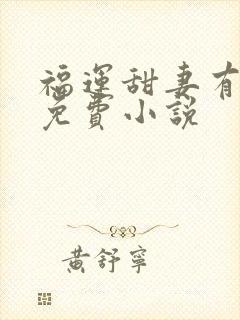 福運甜妻有
免費小說
黃舒寧